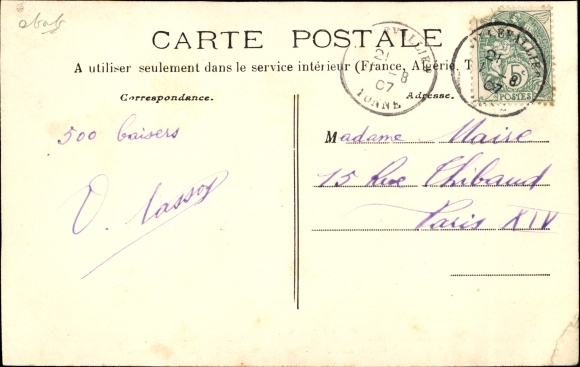 CARTE POSTALE
A utiliser seulement dans le service intérieur (France, Algérie, T
Correspondance.
Adresse.
21
-8
07
YONNE
21
-8
07
5c
POSTES
500 baisers
Madame Maire
15 Rue Thibaud
Paris XIV